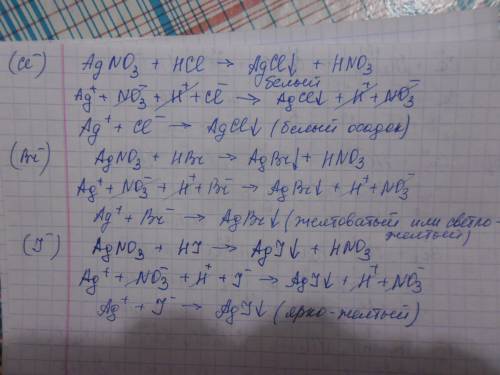 (Cl⁻) AgNO₃ + HCl → AgCl↓ + HNO₃
белый
Ag⁺ + NO₃⁻ + H⁺ + Cl⁻ → AgCl↓ + H⁺ + NO₃⁻
Ag⁺ + Cl⁻ → AgCl↓ (белый осадок)
(Br⁻) AgNO₃ + HBr → AgBr↓ + HNO₃
Ag⁺ + NO₃⁻ + H⁺ + Br⁻ → AgBr↓ + H⁺ + NO₃⁻
Ag⁺ + Br⁻ → AgBr↓ (желтоватый или светло-
желтый)
(J⁻) AgNO₃ + HJ → AgJ↓ + HNO₃
Ag⁺ + NO₃⁻ + H⁺ + J⁻ → AgJ↓ + H⁺ + NO₃⁻
Ag⁺ + J⁻ → AgJ↓ (ярко-желтый)